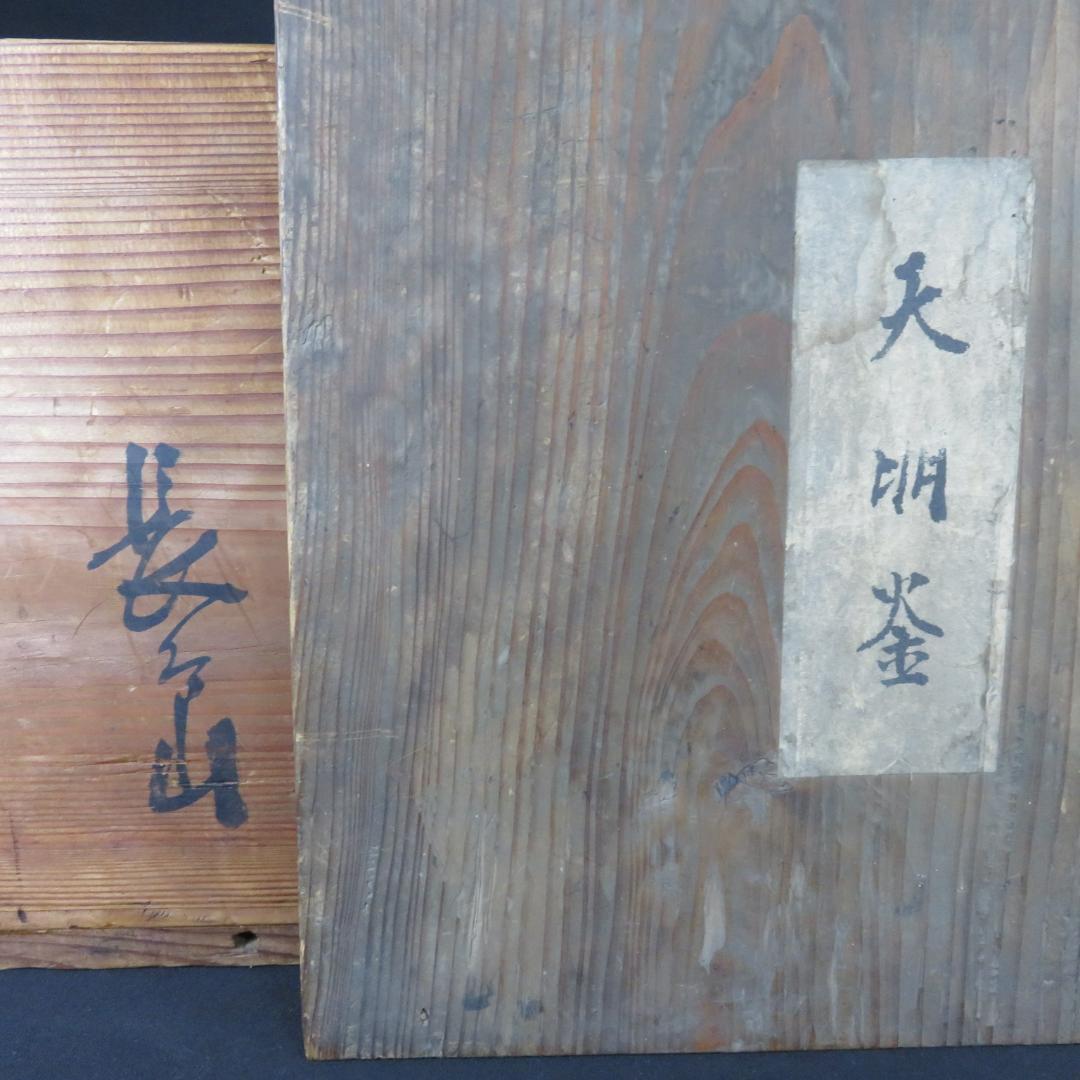 天明釜
長兮山